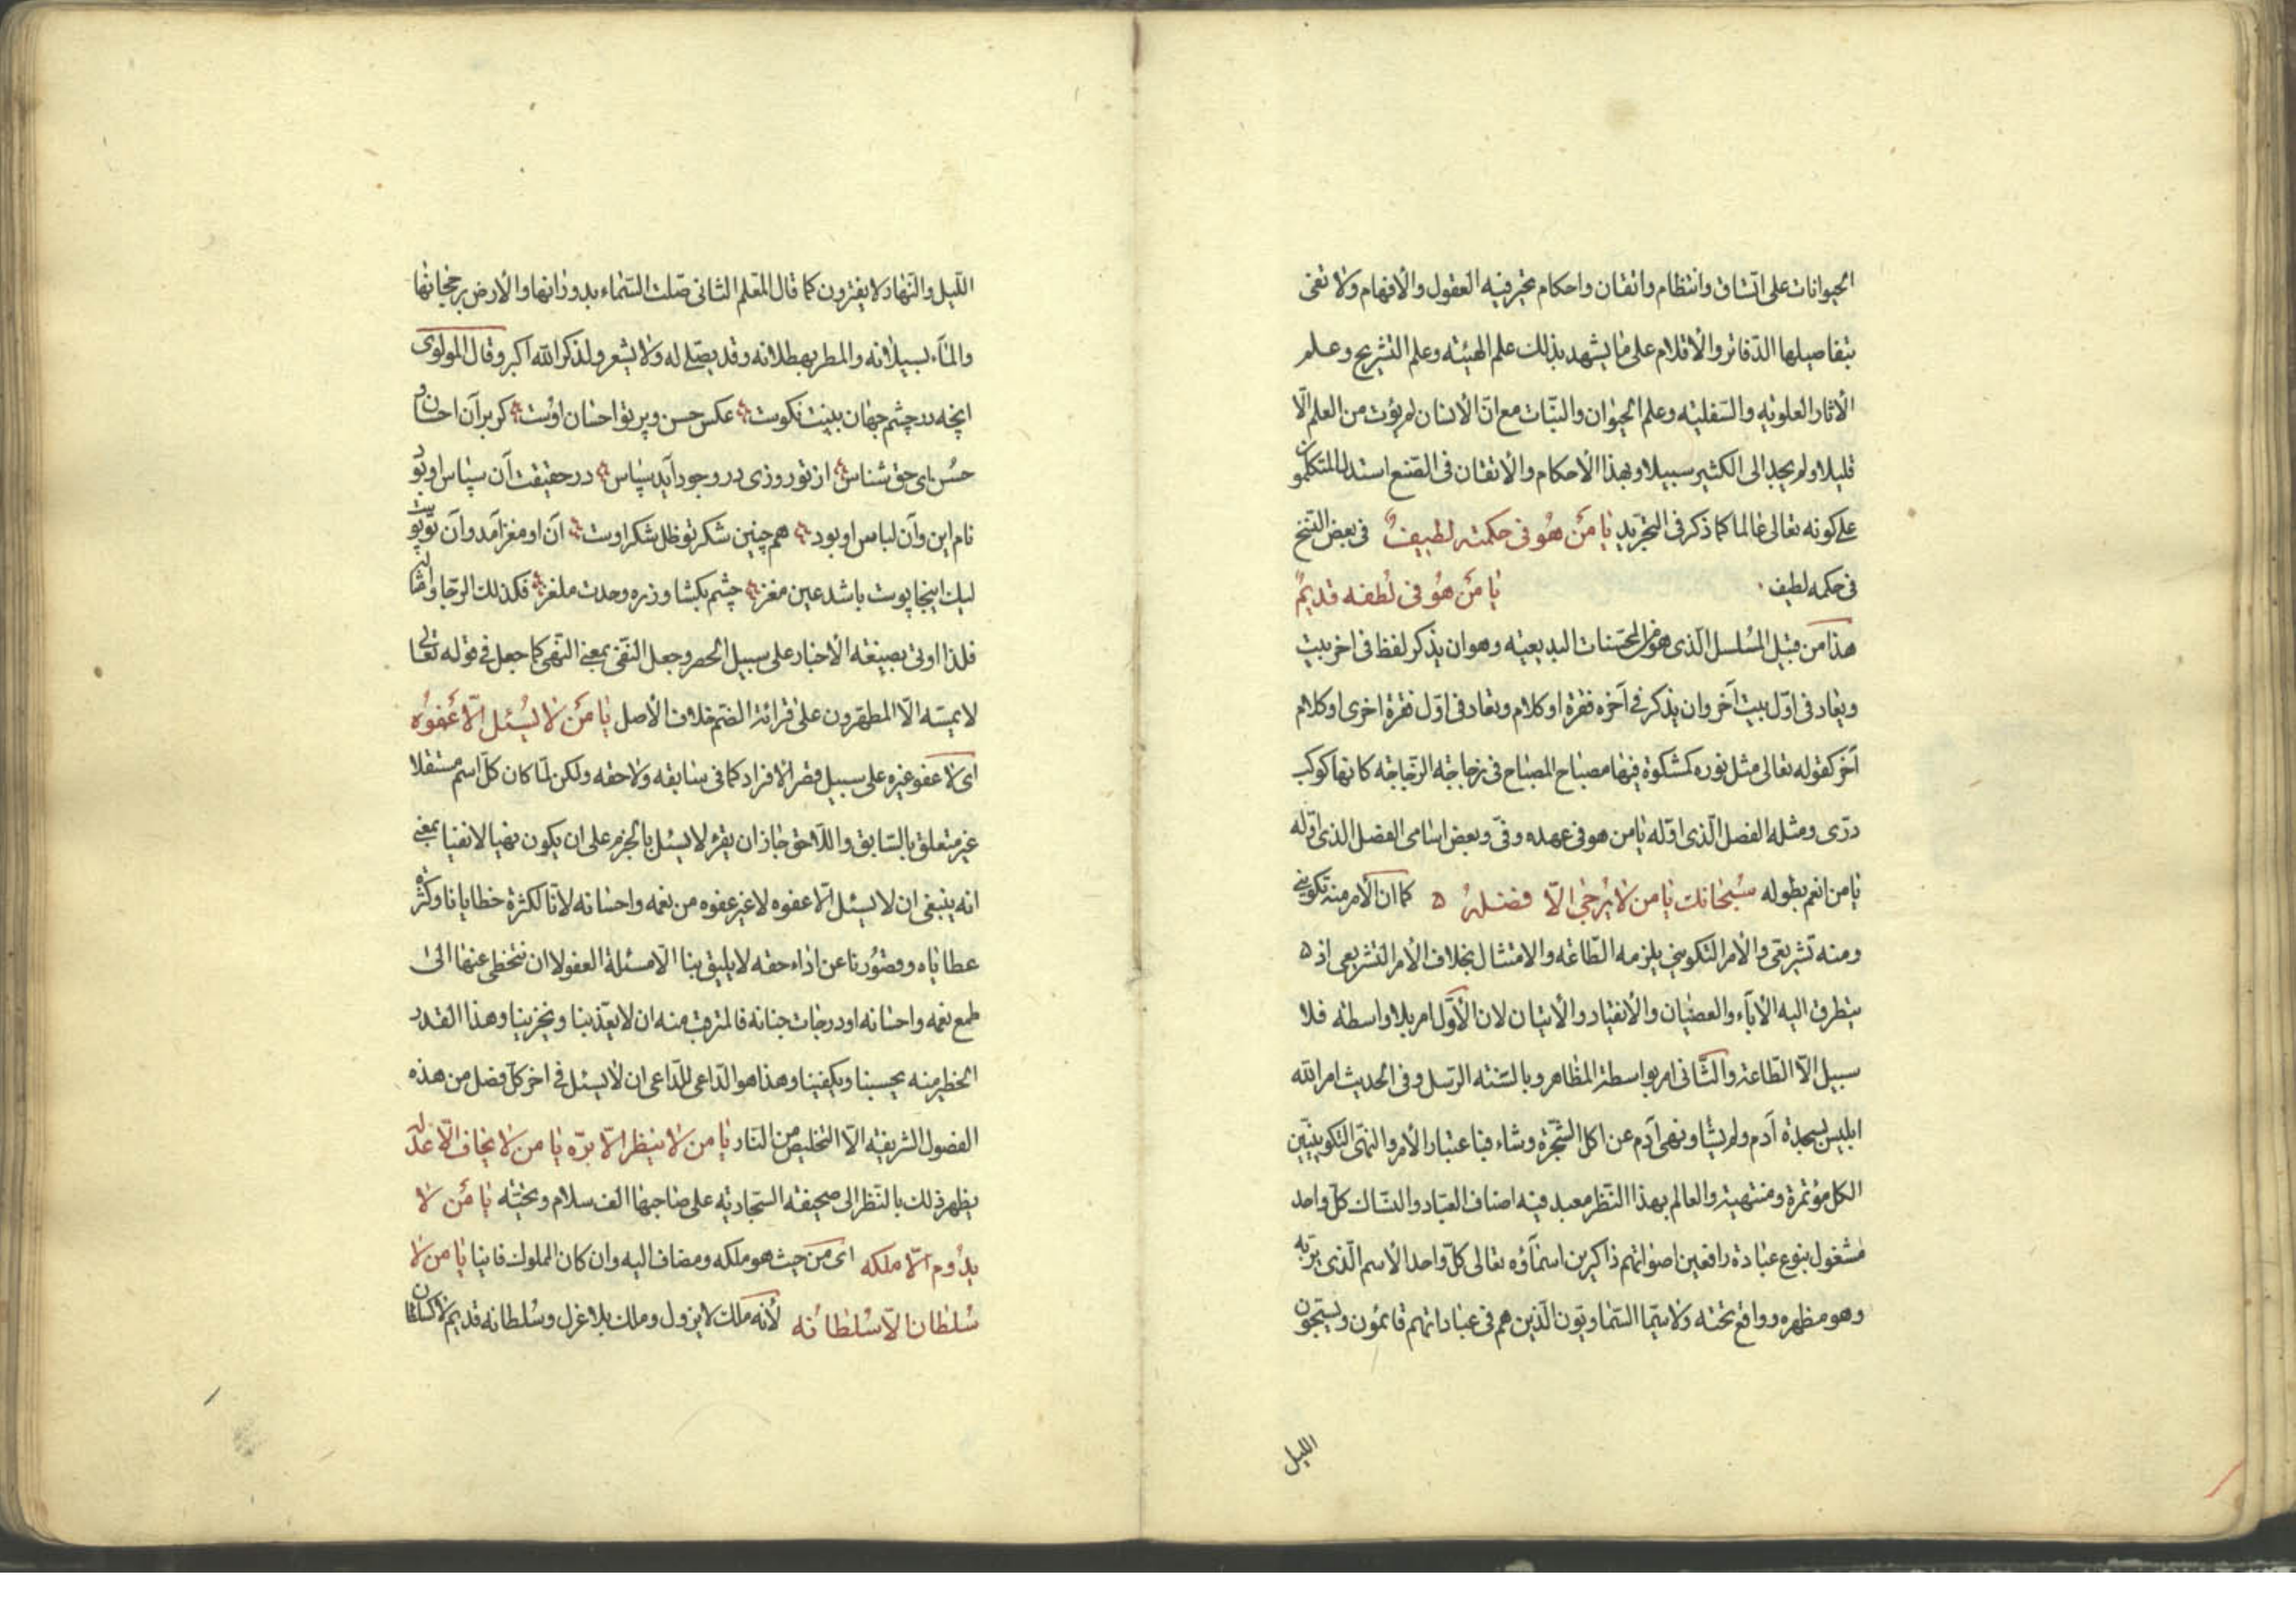 الحيوانات على اتساق وانتظام واتقان واحكام يتحير فيه العقول والافهام ولا تفى
بتفاصيلها الدفاتر والاقلام على ما يشهد بذلك علم الهيئة وعلم التشريح وعلم
الاثار العلوية والسفلية وعلم الحيوان والنبات مع ان الانسان لم يؤت من العلم الا
قليلا ولم يجد الى الكثير سبيلا وبهذا الاحكام والاتقان فى الصنع استدل المتكلمون
على كونه تعالى عالما كما ذكر فى التجريد يا مَن هُو فى حكمته لطيفٌ فى بعض النسخ
فى حكمه لطيف . يا مَن هُو فى لُطفه قديمٌ
هذا من قبيل المسلسل الذى هو من المحسنات البديعية وهو ان يذكر لفظ فى اخر بيت
ويعاد فى اول بيت آخر وان يذكر فى آخره فقرة او كلام ويعاد فى اول فقرة اخرى او كلام
آخر كقوله تعالى مثل نوره كمشكوة فيها مصباح المصباح فى زجاجة الزجاجة كانها كوكب
درّى ومثله الفصل الّذى اوّله يا من هو فى عهده وفىّ وبعض اسامى الفصل الذى اوّله
يا من انعم بطوله سُبحانك يا من لا يُرجى الّا فضلهُ ۵ كما ان الامر منه تكوينى
ومنه تشريعى والأمر التكوينى يلزمه الطّاعة والامتثال بخلاف الأمر التشريعى اذ ۵
يتطرق اليه الاباء والعصيان والانقياد والاتيان لان الأوّل امر بلا واسطة فلا
سبيل الّا الطّاعة والثّانى امر بواسطة المظاهر وبالسنة الرّسل وفى الحديث امر الله
ابليس بسجدة آدم ولم يشا ونهى آدم عن اكل الشّجرة وشاء فباعتبار الأمر والنهى التكوينيّين
الكل مؤتمرة ومنتهية والعالم بهذا النّظر معبد فيه اصناف العبّاد والنسّاك كلّ واحد
مشغول بنوع عبادة رافعين اصواتهم ذاكرين اسماؤه تعالى كلّ واحد الأسم الّذى يربّه
وهو مظهره وواقع تحته ولا سيّما السّماويّون الّذين هم فى عباداتهم قائمون ويسبّحون
الليل
اللّيل والنّهار لا يفترون كما قال المعلم الثانى صلت السّماء بدورانها والأرض برجحانها
والماء بسيلانه والمطر بهطلانه وقد يصلى له ولا يشعر ولذكر الله اكبر وقال المولوى
انچه در چشم جهان بينت نكوست عكس حسن وپرتو احسان اوست كر بر آن احسان و
حسُن اى حق شناس از تو روزى در وجود آيد سپاس در حقيقت آن سپاس او بود
نام اين وآن لباس او بود هم چنين شكر تو ظل شكر اوست آن او مغز آمد وآن تو پوست
ليك اينجا پوست باشد عين مغز چشم بكشا وزره وحدت ملغز فكذلك الرّجا وامثاله
فلذا اوتى بصيغة الأخبار على سبيل الحصر وجعل النّفى بمعنى النّهى كما جعل فى قوله تعالى
لا يمسّه الّا المطهّرون على قرائة الضّم خلاف الأصل يا مَن لا يُسئل الّا عَفوُه
اى لا عفو غيره على سبيل قصر الافراد كما فى سابقه ولاحقه ولكن لمّا كان كلّ اسم مستقلا
غير متعلق بالسّابق واللّاحق جاز ان يقرء لا يسئل بالجزم على ان يكون نهيا لا نفيا بمعنى
انه ينبغى ان لا يسئل الّا عفوه لا غير عفوه من نعمه واحسانه لانّا لكثرة خطايانا وكثرة
عطاياه وقصُورنا عن اداء حقه لا يليق بنا الّا مسئلة العفو لا ان نتخطى عنها الى
طمع نعمه واحسانه او درجات جنانه فالمترقب منه ان لا يعذّبنا ويخزينا وهذا القدر
الخطير منه يحسبنا ويكفينا وهذا هو الدّاعى للدّاعى ان لا يسئل فى اخر كلّ فصل من هذه
الفصول الشريفة الّا التخليص من النّار يا من لا ينظر الّا برّه يا من لا يخاف الّا عدله
يظهر ذلك بالنّظر الى صحيفة السجّادية على صاحبها الف سلام وتحيّة يا مَن لا
يدُوم الّا ملكه اى من حيث هو ملكه ومضاف اليه وان كان المملوك فانيا يا من لا
سُلطان الّا سُلطانُه لأنه ملك لا يزول وملك بلا عزل وسُلطانه قديم لا كسلطان